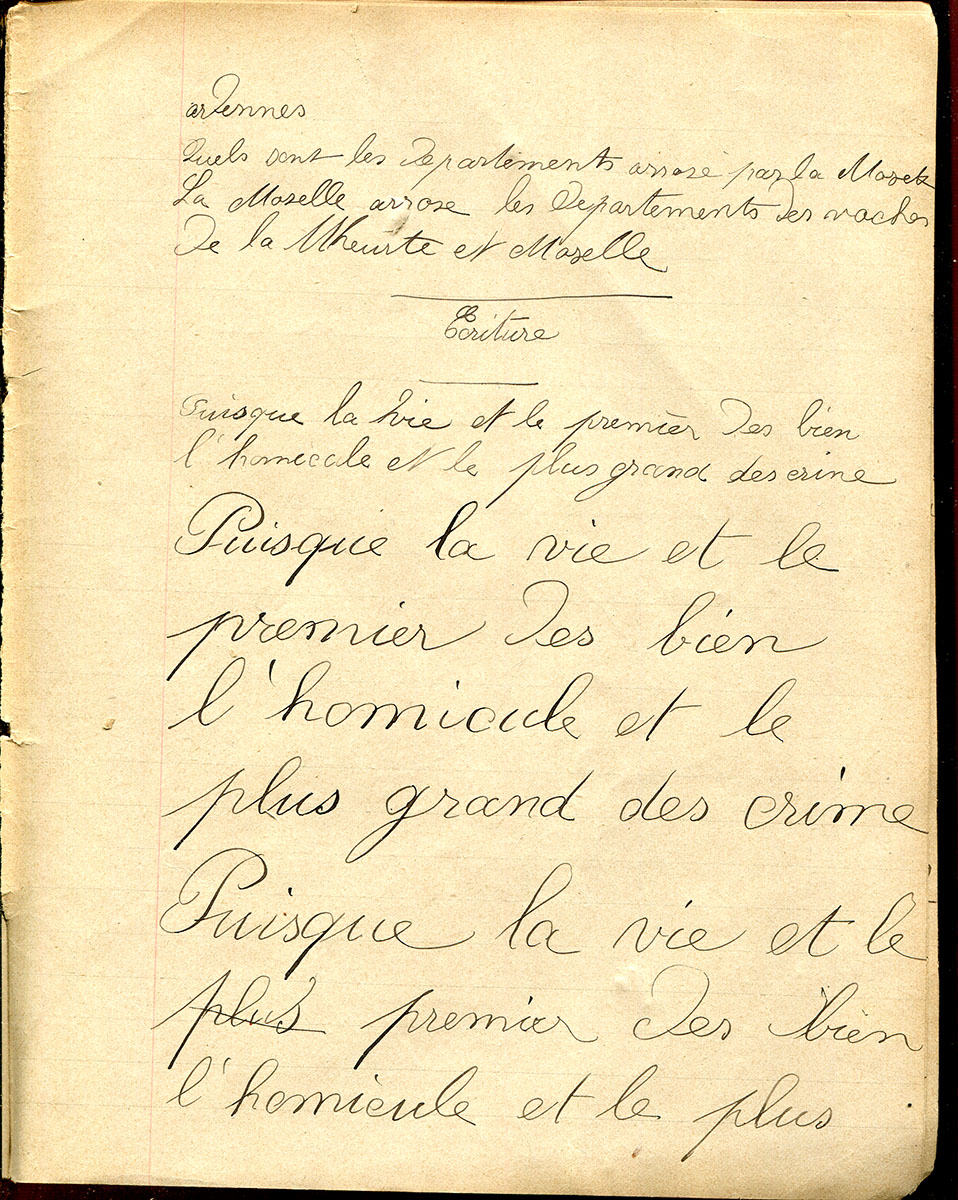 ardennes
Quels sont les departements arrosé par la Mosel
La Moselle arrose les departements des voches
de la Mheurte et Moselle
Ecriture
Puisque la vie et le premier des bien
l'homicule et le plus grand des crine
Puisque la vie et le
premier des bien
l'homicule et le
plus grand des crime
Puisque la vie et le
plus premier des bien
l'homicule et le plus